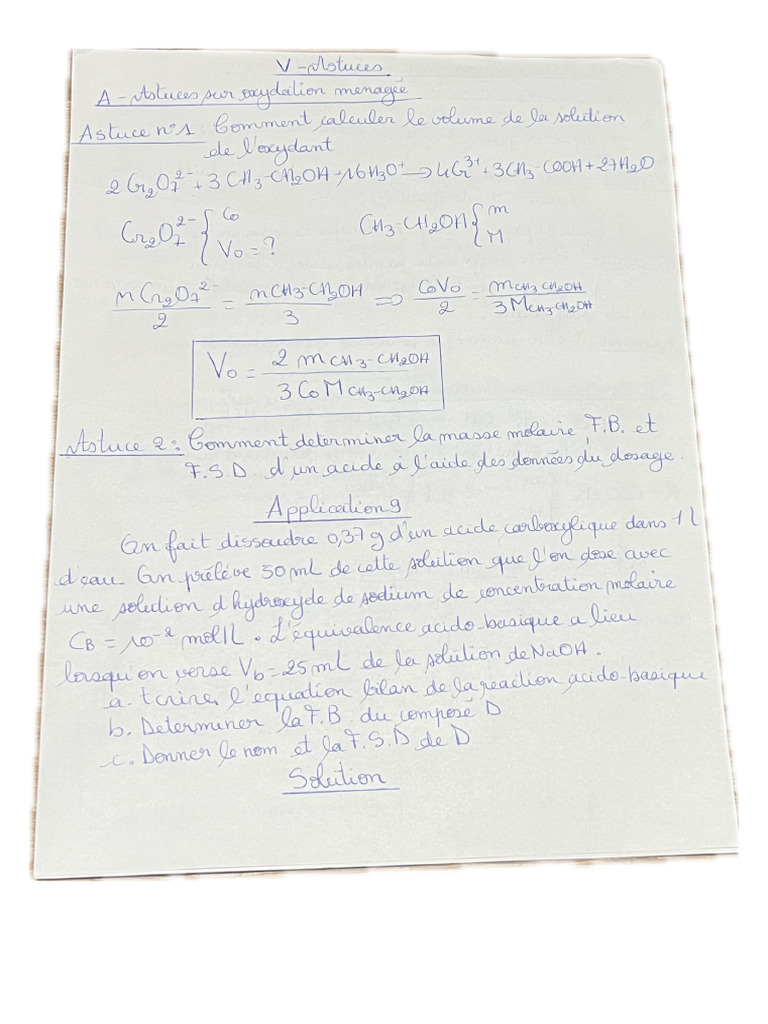 V - Astuces
A - Astuces sur oxydation menagée
Astuce n°1 : Comment calculer le volume de la solution
de l'oxydant
2 Cr2O7^2- + 3 CH3-CH2OH + 16H3O+ → 4Cr^3+ + 3CH3-COOH + 27H2O
Cr2O7^2- { Co Vo = ? CH3-CH2OH { m M
nCr2O7^2-/2 = nCH3-CH2OH/3 ⇒ CoVo/2 = mCH3-CH2OH/3MCH3-CH2OH
Vo = 2 mCH3-CH2OH/3 Co MCH3-CH2OH
Astuce 2 : Comment determiner la masse molaire, F.B. et
F.S.D d'un acide à l'aide des données du dosage.
Application 9
On fait dissoudre 0,37 g d'un acide carboxylique dans 1L
d'eau. On prélève 50 mL de cette solution que l'on dose avec
une solution d'hydroxyde de sodium de concentration molaire
CB = 10^-2 mol/L. L'équivalence acido-basique a lieu
lorsqu'on verse Vb = 25 mL de la solution de NaOH.
a. Ecrire l'equation bilan de la reaction acido-basique
b. Determiner la F.B. du composé D
c. Donner le nom et la F.S.D de D
Solution